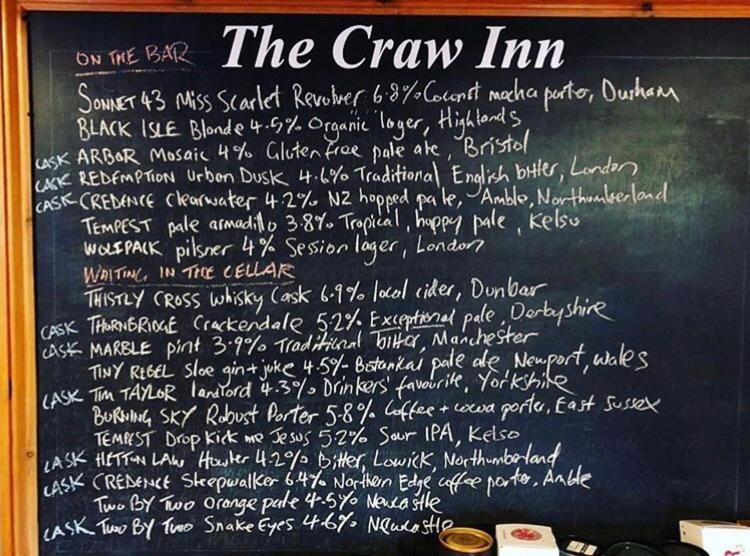 The Craw Inn
ON THE BAR
SONNET 43 Miss Scarlet Revolver 6.8% Coconut mocha porter, Durham
BLACK ISLE Blonde 4.5% Organic lager, Highlands
CASK ARBOR Mosaic 4% Gluten free pale ale, Bristol
CASK REDEMPTION Urban Dusk 4.6% Traditional English bitter, London
CASK CREDENCE Clearwater 4.2% NZ hopped pale, Amble, Northumberland
TEMPEST pale armadillo 3.8% Tropical, hoppy pale, Kelso
WOLFPACK pilsner 4% Session lager, London
WAITING IN THE CELLAR
THISTLY CROSS Whisky Cask 6.9% local cider, Dunbar
CASK THORNBRIDGE Crackendale 5.2% Exceptional pale, Derbyshire
CASK MARBLE pint 3.9% Traditional bitter, Manchester
TINY REBEL Sloe gin + juke 4.5% Botanical pale ale Newport, Wales
CASK TIM TAYLOR landlord 4.3% Drinkers' favourite, Yorkshire
BURNING SKY Robust Porter 5.8% Coffee + cocoa porter, East Sussex
TEMPEST Drop Kick me Jesus 5.2% Sour IPA, Kelso
CASK HETTON LAW Howler 4.2% Bitter, Lowick, Northumberland
CASK CREDENCE Sleepwalker 6.4% Northern Edge coffee porter, Amble
TWO BY TWO Orange pale 4.5% Newcastle
CASK TWO BY TWO Snake Eyes 4.6% Newcastle